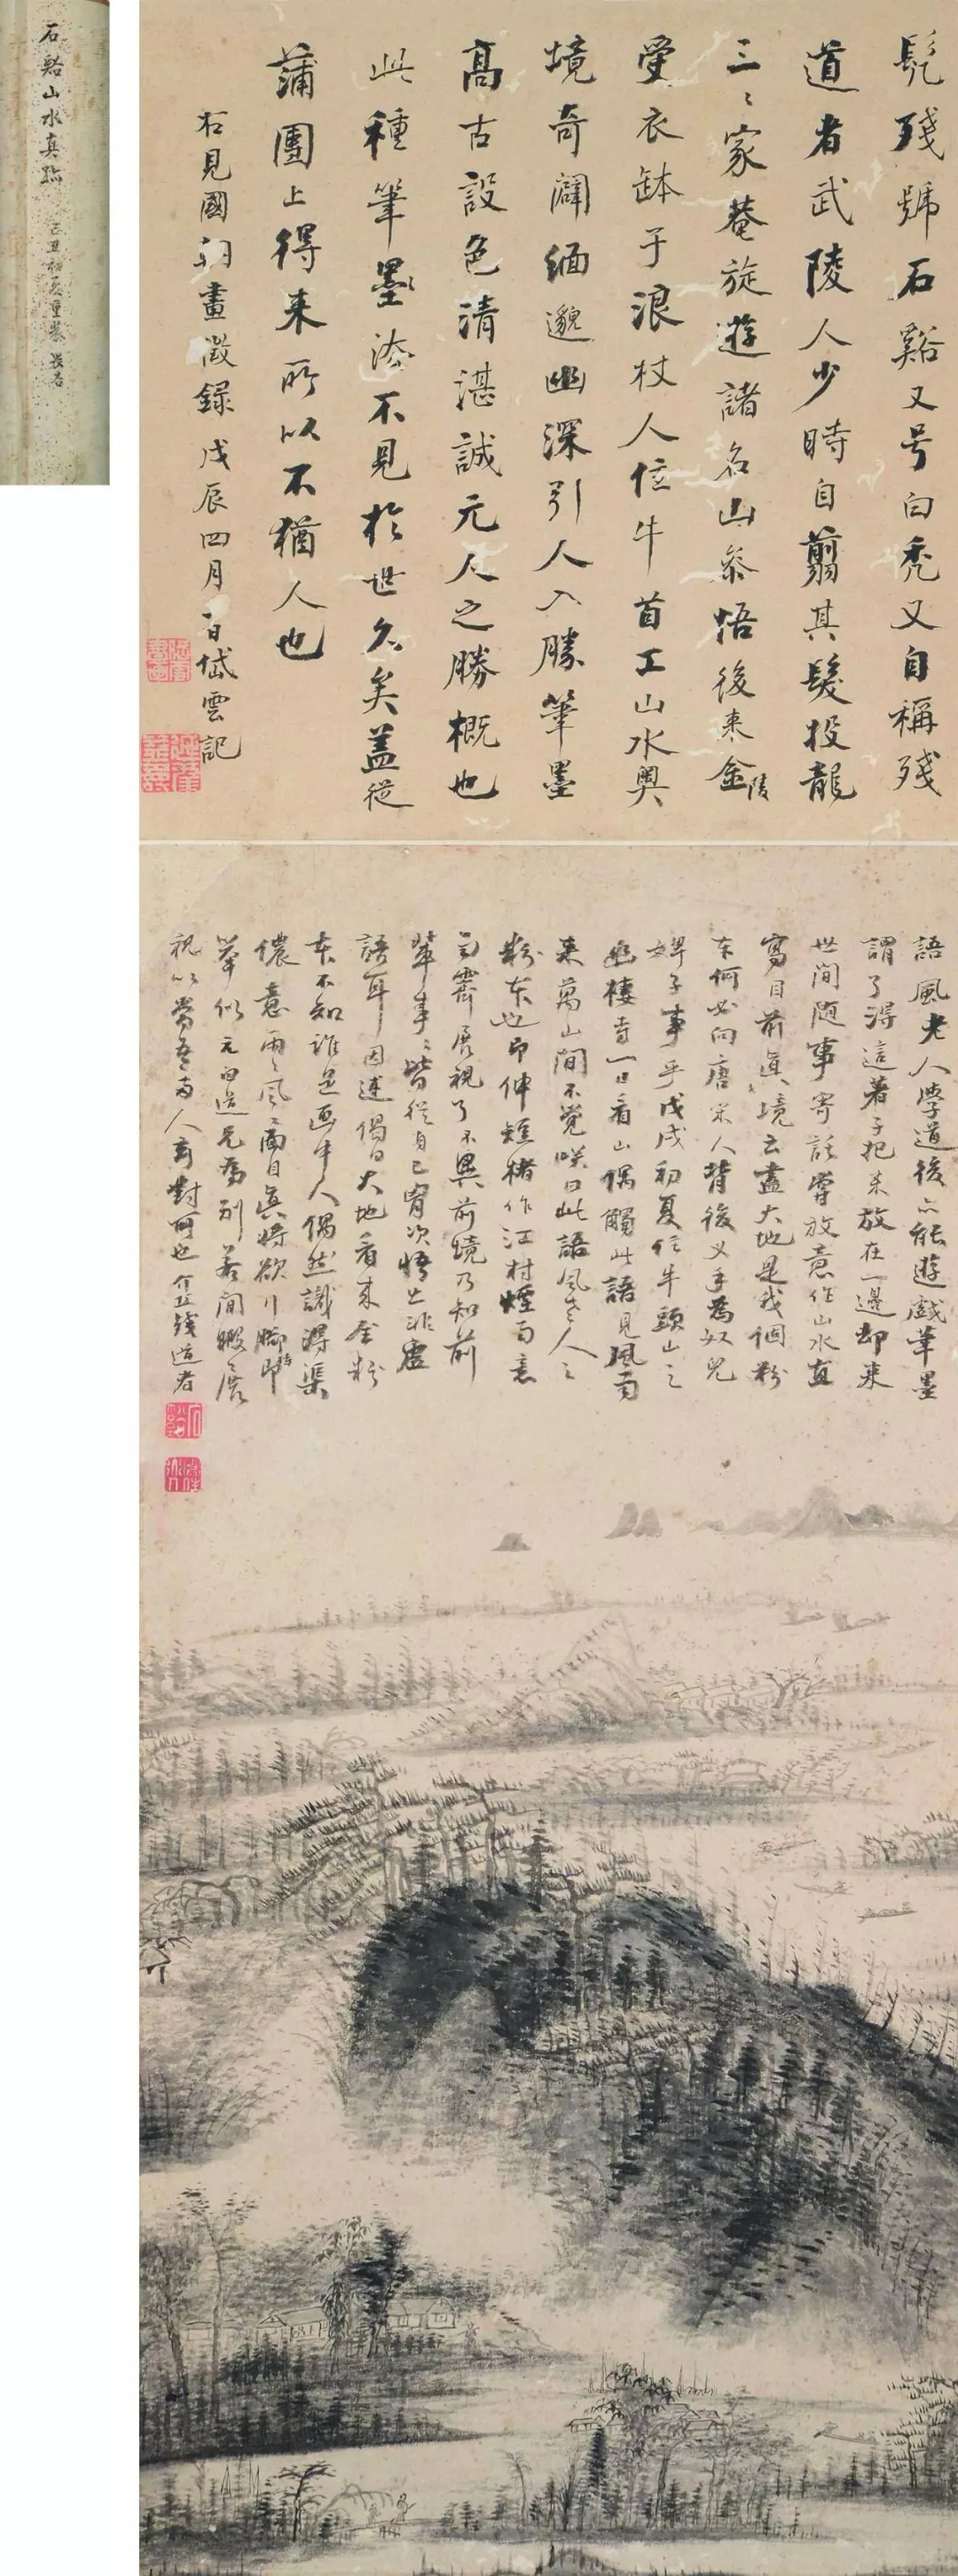 石谿山水真跡
己丑初夏重裝
髡殘號石谿又号白禿又自稱殘
道者武陵人少時自翦其髮投龍
三三家菴旋遊諸名山參悟後來金陵
受衣缽于浪杖人位牛首工山水奧
境奇闢緬邈幽深引人入勝筆墨
高古設色清湛誠元人之勝概也
此種筆墨不見於世久矣蓋從
蒲團上得來所以不猶人也
右見國朝畫徵錄戊辰四月 日岱雲記
語風老人學道後亦能遊戲筆墨
謂了得這著子把來放在一邊却来
世間隨事寄託嘗放意作山水直
寫目前真境云盡大地是我個粉
本何必向唐宋人背後叉手為奴兒
婢子事乎戊戌初夏住牛頭山之
幽棲寺一日看山偶觸此語見風雨
来萬山間不覺咲曰此語風老人之
粉本也即伸短楮作江村煙雨意
雨霽展視了不異前境乃知前
輩事事皆從自己胷次悟出非虛
語耳因述偈曰大地看来全粉
本不知誰是画中人偶然識得渠
儂意雨雨風風面目真將欲行腳持即
舉似元白道兄為別若閒暇展
視以當吾兩人言對可也 殘道者